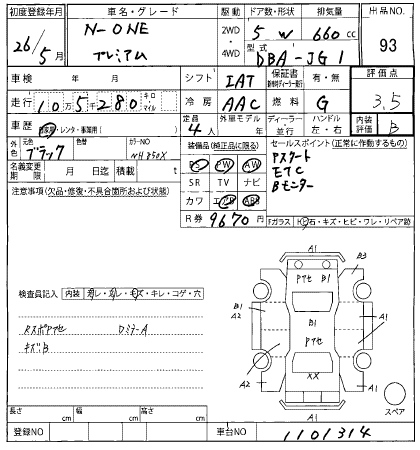 初度登録年月 車名・グレード 駆動 ドア数・形状 排気量 出品NO.
26/5月 N-ONE プレミアム 2WD 4WD 5 W 660 cc 93
型式 DBA-JG1
車検 年 月 シフト IAT 保証書 有・無 評価点
走行 10万5千280 キロ マイル 冷房 AAC 燃料 G 3.5
車歴 自家用・レンタ・事業用( ) 定員 4人 外車モデル 年 ディーラー 並行 ハンドル 左・右 内装評価 B
外色 元色 ブラック 色替 カラーNO
装備品(純正品に限る) セールスポイント(正常に作動するもの)
名義変更期限 月 日迄 積載 t
PS PW AW
SR TV ナビ
カワ エアB ABS
Aスマート
ETC
Bモニター
注意事項(欠品・修復・不具合箇所および状態)
R券 9670円
Fガラス 石・キズ・ヒビ・ワレ・リペア跡
検査員記入 内装 ・キレ・コゲ・穴
キズ:B
A1
B3
B1
A2
B1
A1
A2
XX
A1
A1
スペア
長さ cm 幅 cm 高さ cm
登録NO 車台NO 1101314